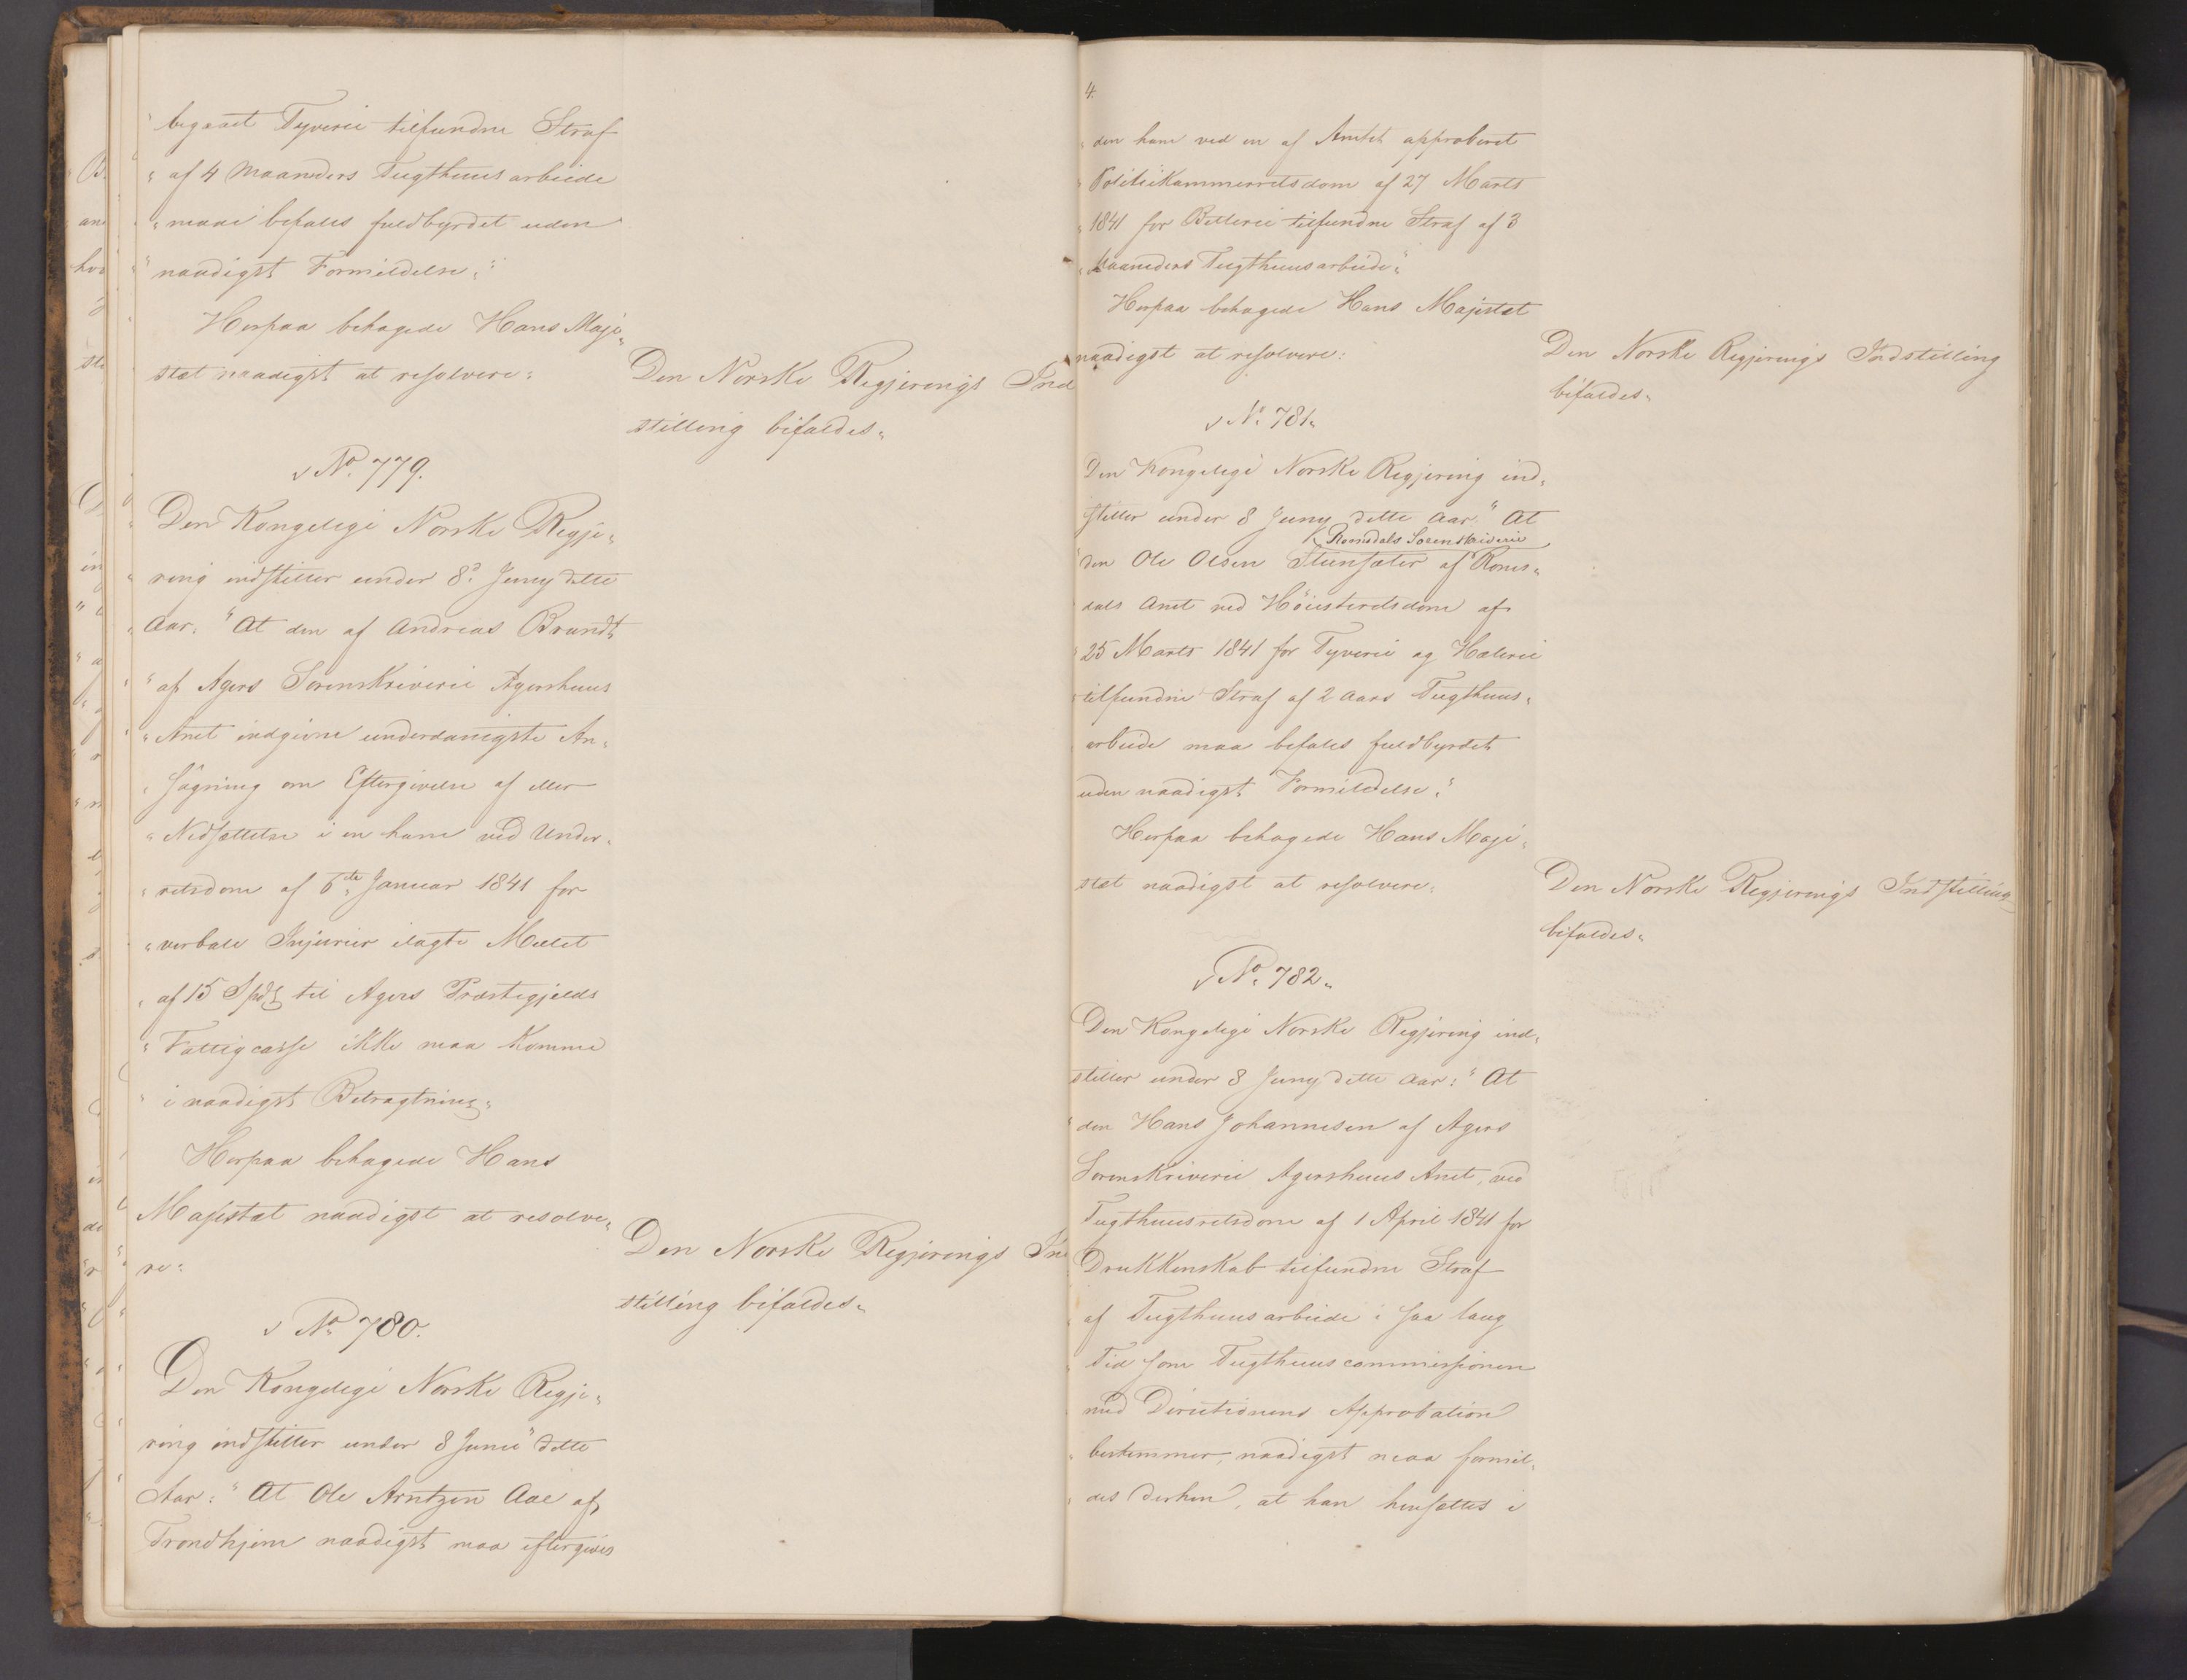 " begaaet Tyverie tilfundne Straf
" af 4 Maaneders Tugthuusarbeide
" maae befales fuldbyrdet uden
" naadigst Formildelse."
Herpaa behagede Hans Maje-
stæt naadigst at resolvere:
Den Norske Regjerings Ind
stilling bifaldes.
No. 779.
Den Kongelige Norske Regje-
ring indstiller under 8d Juny dette
Aar: "At den af Andreas Brandt
" af Agers Sorenskriverie Agershuus
" Amt indgivne underdanigste An-
" søgning om Eftergivelse af eller
" Nedsættelse i en ham ved Under-
" retsdom af 6te Januar 1841 for
" verbale Injurier ilagte Mulct
" af 15 Spd. til Agers Præstegjelds
" Fattigcasse ikke maa komme
" i naadigst Betragtning.
Herpaa behagede Hans
Majestæt naadigst at resolve-
re:
Den Norske Regjerings In
stilling bifaldes.
No 780.
Den Kongelige Norske Regje-
ring indstiller under 8 Junii dette
Aar: "At Ole Arntzen Aae af
Trondhjem naadigst maa eftergives
4.
" den ham ved en af Amtet approberet
" Politiekammerretsdom af 27 Marts
" 1841 for Betlerie tilfundne Straf af 3
" Maaneders Tugthuusarbeide."
Herpaa behagede Hans Majestæt
naadigst at resolvere:
Den Norske Regjerings Indstilling
bifaldes.
No. 781.
Den Kongelige Norske Regjering ind-
stiller under 8 Juny dette Aar: "At
Romsdals Sorenskriverie
" den Ole Olsen Steensæter af Roms-
dals Amt ved Høiesteretsdom af
" 25 Marts 1841 for Tyverie og Hælerie
" tilfundne Straf af 2 Aars Tugthuus-
arbeide maa befales fuldbyrdet
uden naadigst Formildelse."
Herpaa behagede Hans Maje-
stæt naadigst at resolvere:
Den Norske Regjerings Indstilling
bifaldes.
No. 782.
Den Kongelige Norske Regjering ind-
stiller under 8 Juny dette Aar: "At
" den Hans Johannesen af Agers
Sorenskriverie Agershuus Amt, ved
Tugthuusretsdom af 1 April 1841 for
Drukkenskab tilfundne Straf
af Tugthuusarbeide i saa lang
" Tid som Tugthuuscommissionen
med Directionens Approbation
" bestemmer, naadigst maa formil-
" des derhen, at han hensættes i